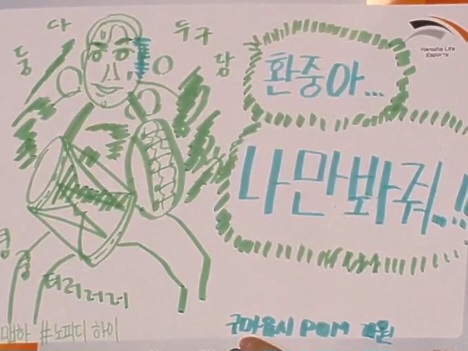 둥 다 두구 담
Hanwha Life
Esports
환중아...
나만봐줘..!!
터러러러
#노피디 하이
구마유시 POM 기원